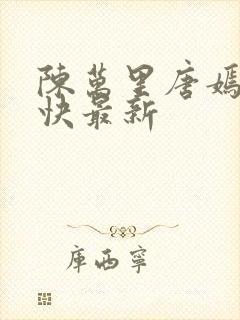 陳萬里唐嫣
快最新
庫西寧